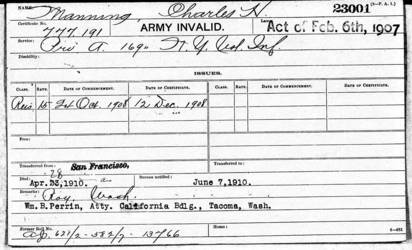 NAME: Manning, Charles H. 23001
Certificate No. 777.191 ARMY INVALID. Law: Act of Feb. 6th, 1907
Service: Pri A. 169" N.Y. Vol. Inf
Disability:
ISSUES.
CLASS. RATE. DATE OF COMMENCEMENT. DATE OF CERTIFICATE. CLASS. RATE. DATE OF COMMENCEMENT. DATE OF CERTIFICATE.
Reis 15 Oct. 1908 12 Dec. 1908
Fees:
Transferred from: San Francisco.
Died: Apr.28,1910. Bureau notified: June 7,1910.
Remarks: Roy, Wash.
Wm. B. Perrin, Atty. California Bdg., Tacoma, Wash.
Former Roll No. 13766